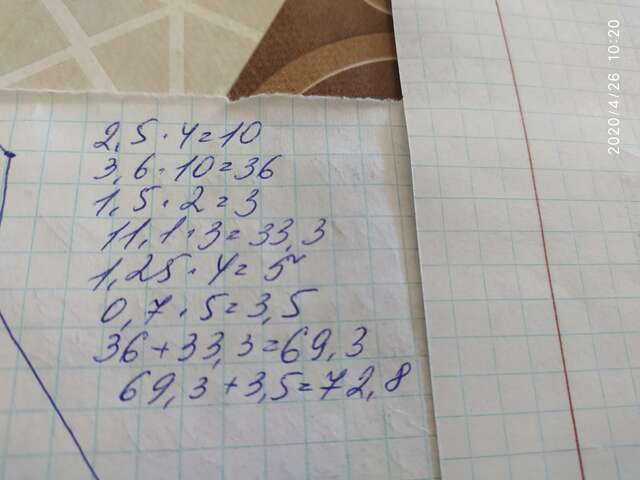 2,5 · 4 = 10
3,6 · 10 = 36
1,5 · 2 = 3
11,1 · 3 = 33,3
1,25 · 4 = 5
0,7 · 5 = 3,5
36 + 33,3 = 69,3
69,3 + 3,5 = 72,8
2020/4/26 10:20